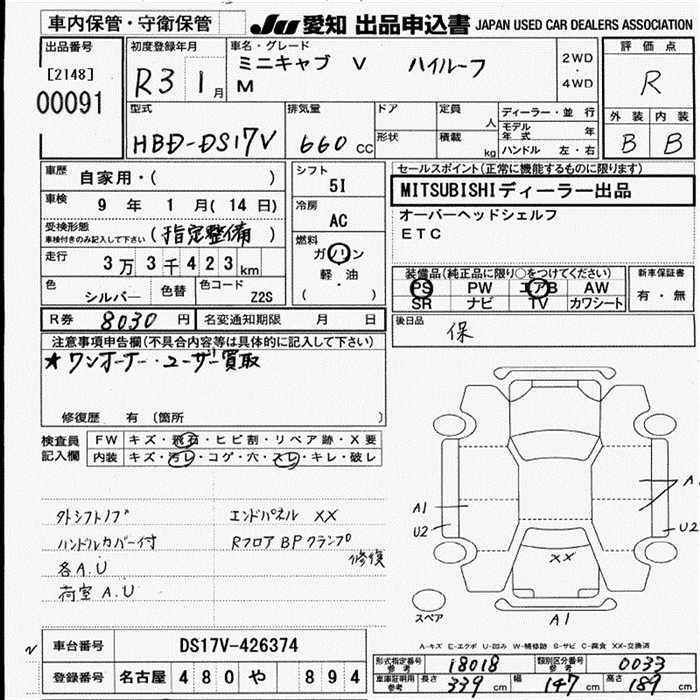 車内保管・守衛保管 JU 愛知 出品申込書 JAPAN USED CAR DEALERS ASSOCIATION
出品番号 初度登録年月 車名・グレード 評価点
[2148] R3 1月 ミニキャブ V ハイルーフ 2WD
・
00091 M 4WD R
型式 排気量 ドア 定員 人 ディーラー・並行 外装 内装
HBD-DS17V 660 CC 形状 積載 kg モデル年式 年 B B
ハンドル 左・右
車歴 自家用・( ) シフト 5I セールスポイント(正常に機能するものに限ります)
車検 9年 1月(14日) 冷房 AC MITSUBISHIディーラー出品
受検形態 (指定整備) オーバーヘッドシェルフ
車検付きのみ記入して下さい 燃料 ETC
走行 3万3千423km ガソリン
軽・油
(・) 装備品(純正品に限り○をつけてください) 新車保証書
色 シルバー 色替 色コード Z2S PS PW エアB AW 有・無
SR ナビ TV カワシート
R券 8030円 名変通知期限 月 日 後日品 保
注意事項申告欄(不具合内容等は具体的に記入して下さい)
★ワンオーナー・ユーザー買取
修復歴 有 (箇所 )
検査員記入欄 FW キズ・飛石・ヒビ割・リペア跡・X要
内装 キズ・汚レ・コゲ・穴・スレ・キレ・破レ
外シフトノブ エンドパネル XX
ハンドルカバー付 Rフロア BPクランプ 修復
各A.U
荷室A.U
A1
U2
A
U2
XX
スペア
A1
A-キズ E-エクボ U-凹み W-補修跡 S-サビ C-腐食 XX-交換済
車台番号 DS17V-426374
登録番号 名古屋 480 や 894
形式指定番号 参考 18018 類別区分番号 参考 0033
車庫証明用 参考 長さ 339 cm 幅 147 cm 高さ 189 cm